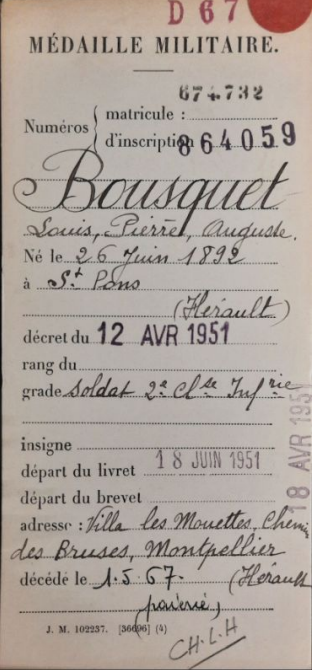 D 67
MÉDAILLE MILITAIRE.
674.732
Numéros { matricule :
d'inscription 864059
Bousquet
Louis, Pierre, Auguste.
Né le 26 Juin 1892
à St Pons
(Hérault)
décret du 12 AVR 1951
rang du
grade soldat 2e Clse Infrie
insigne
départ du livret 18 JUIN 1951
18 AVR 1951
départ du brevet
adresse : Villa les Mouettes, Chemin
des Bruses, Montpellier
décédé le 1.5.67. (Hérault
J. M. 102237. [36696] (4)
CH.L.H